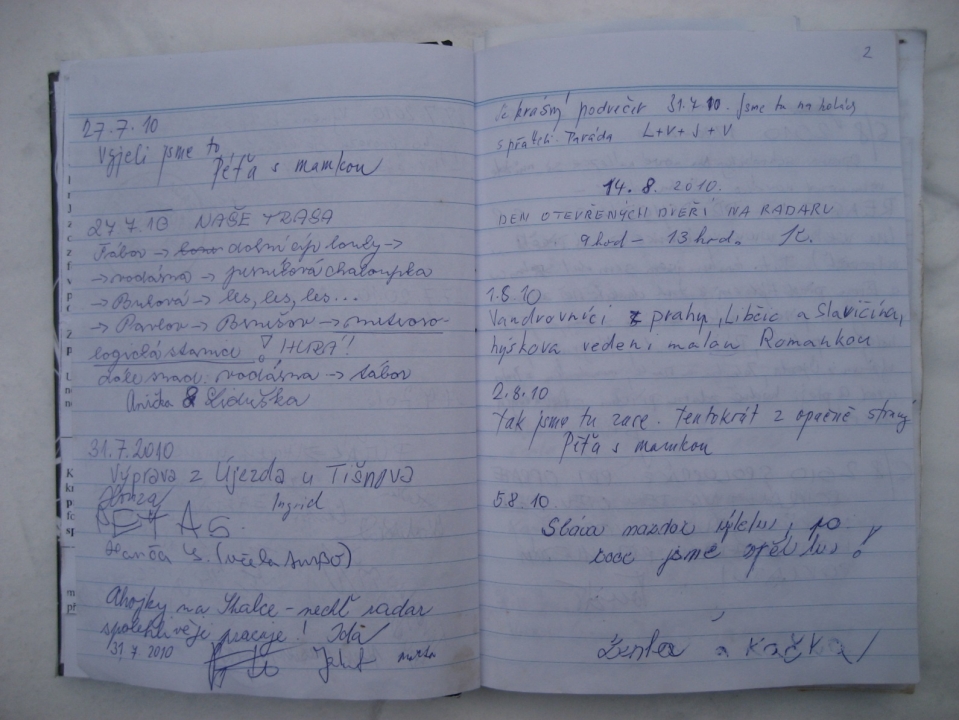 27.7.10
Vyjeli jsme tu
Péťa s mamkou
27.7.10 NAŠE TRASA
Tábor → dolní louky →
→ vodárna → perníková chaloupka
→ Buková → les, les, les...
→ Pavlov → Benešov → meteoro-
logická stanice ! HURÁ!
dále snad: vodárna → tábor
Anička & Liduška
31.7.2010
Výprava z Újezda u Tišnova
Honza Ingrid
PEŤAS
Hanča S. (včela
Ahojky na Skalce - nechť radar
spolehlivěji pracuje!
31.7 2010
2
Je krásný podvečer 31.7.10. jsme tu na kolech
s přáteli. Paráda L+V+J+V
14.8.2010.
DEN OTEVŘENÝCH DVEŘÍ NA RADARU
9hod - 13hod.
1.8.10
Vandrovníci z prahy, Libčic a Slavičína,
hýskova vedeni malou Romankou
2.8.10
Tak jsme tu zase. Tentokrát z opačné strany
Péťa s mamkou
5.8.10
Sláva nazdar výletu, po
jsme
Lenka a Kačka